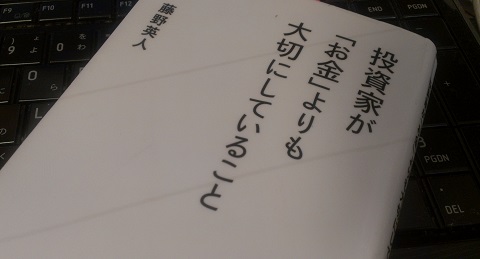 投資家が
「お金」よりも
大切にしていること
藤野英人
F9
F10
F11
F12
PGDN
3
PGDN
DEL